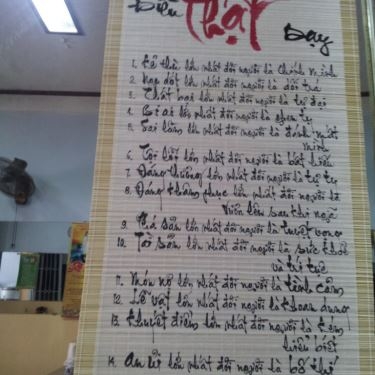 Điều
Phật
Dạy
1. Kẻ thù lớn nhất đời người là chính mình
2. Ngu dốt lớn nhất đời người là dối trá
3. Thất bại lớn nhất đời người là tự đại
4. Bi ai lớn nhất đời người là ghen tỵ
5. Sai lầm lớn nhất đời người là đánh mất
mình
6. Tội lỗi lớn nhất đời người là bất hiếu
7. Đáng thương lớn nhất đời người là tự ty
8. Đáng khâm phục lớn nhất đời người là
vươn lên sau khi ngã
9. Phá sản lớn nhất đời người là tuyệt vọng
10. Tài sản lớn nhất đời người là sức khỏe
và trí tuệ
11. Món nợ lớn nhất đời người là tình cảm
12. Lễ vật lớn nhất đời người là khoan dung
13. Khuyết điểm lớn nhất đời người là kém
hiểu biết
14. An ủi lớn nhất đời người là bố thí